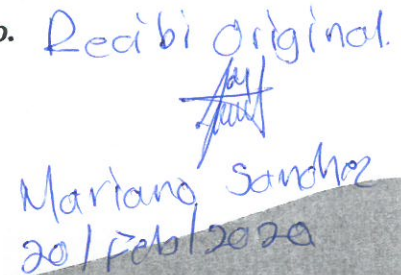 o. Recibi Original.
Mariano Sanchez
20/Feb/2020